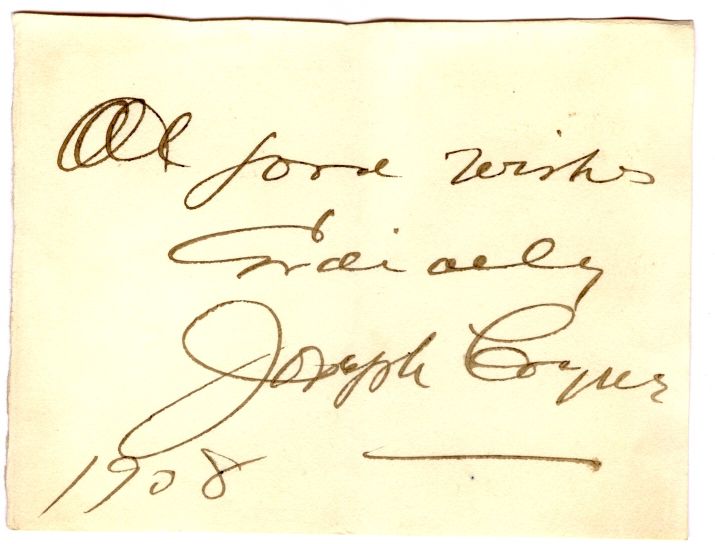 All good wishes
Cordially
Joseph Coyne
1908